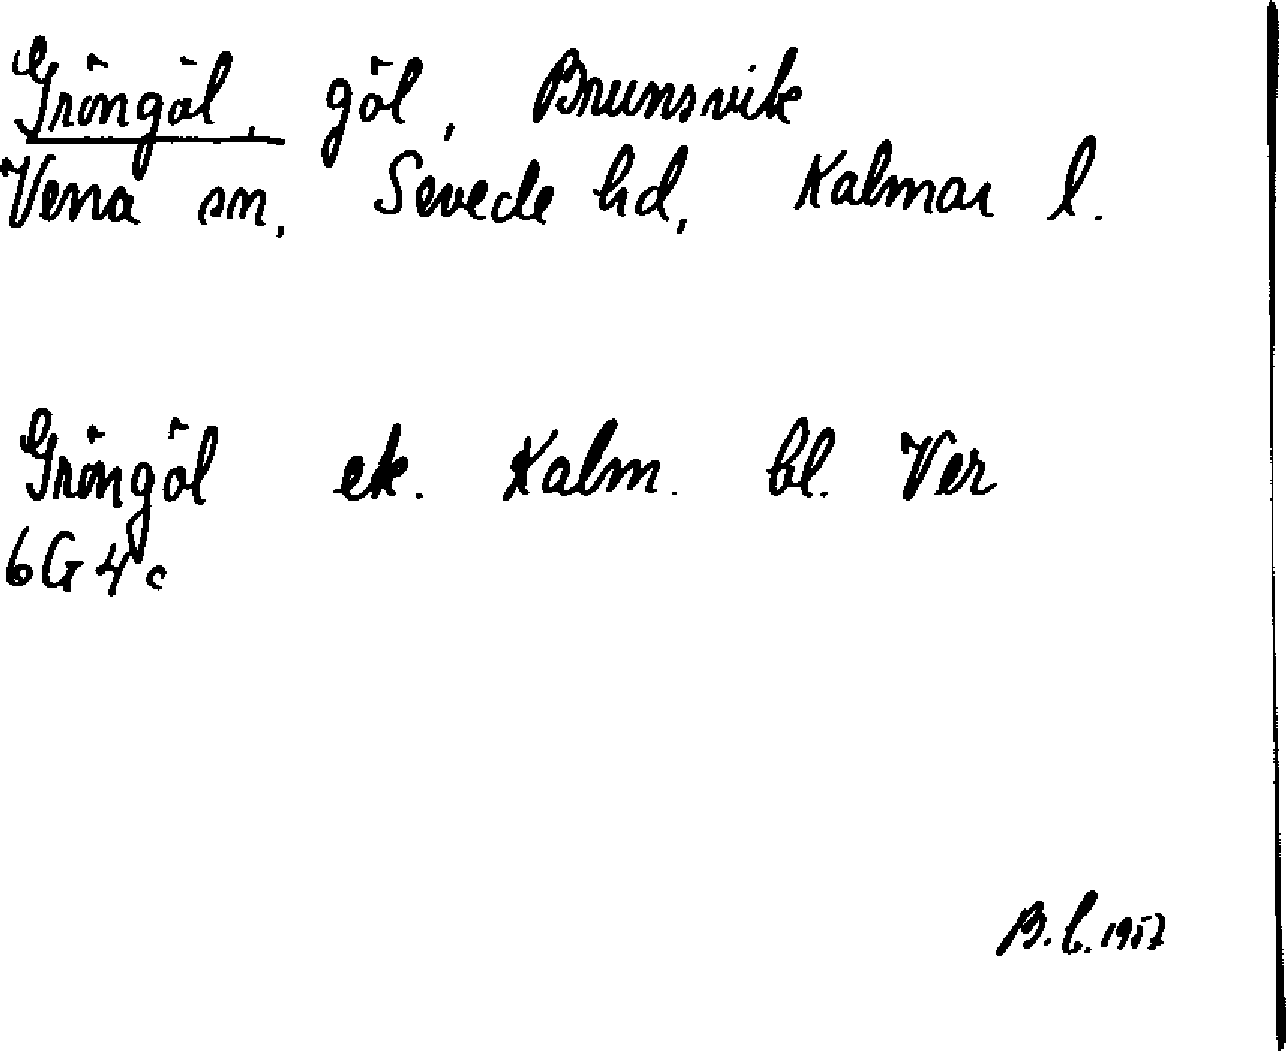 Gröngöl, göl, Brunsvik
Vena sn, Sevede hd, Kalmar l.
Gröngöl ek. Kalm. bl. Ver
6G4c
B.C. 1957